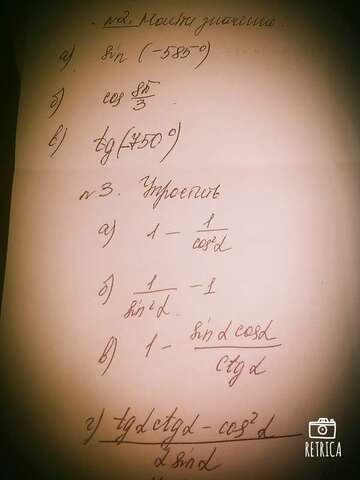 №2. Найти значение.
а) sin (-585°)
б) cos 8π/3
в) tg(-750°)
№3. Упростить
а) 1 - 1/cos²α
б) 1/sin²α - 1
в) 1 - sinα cosα/ctgα
г) tgα ctgα - cos²α/2 sinα
RETRICA